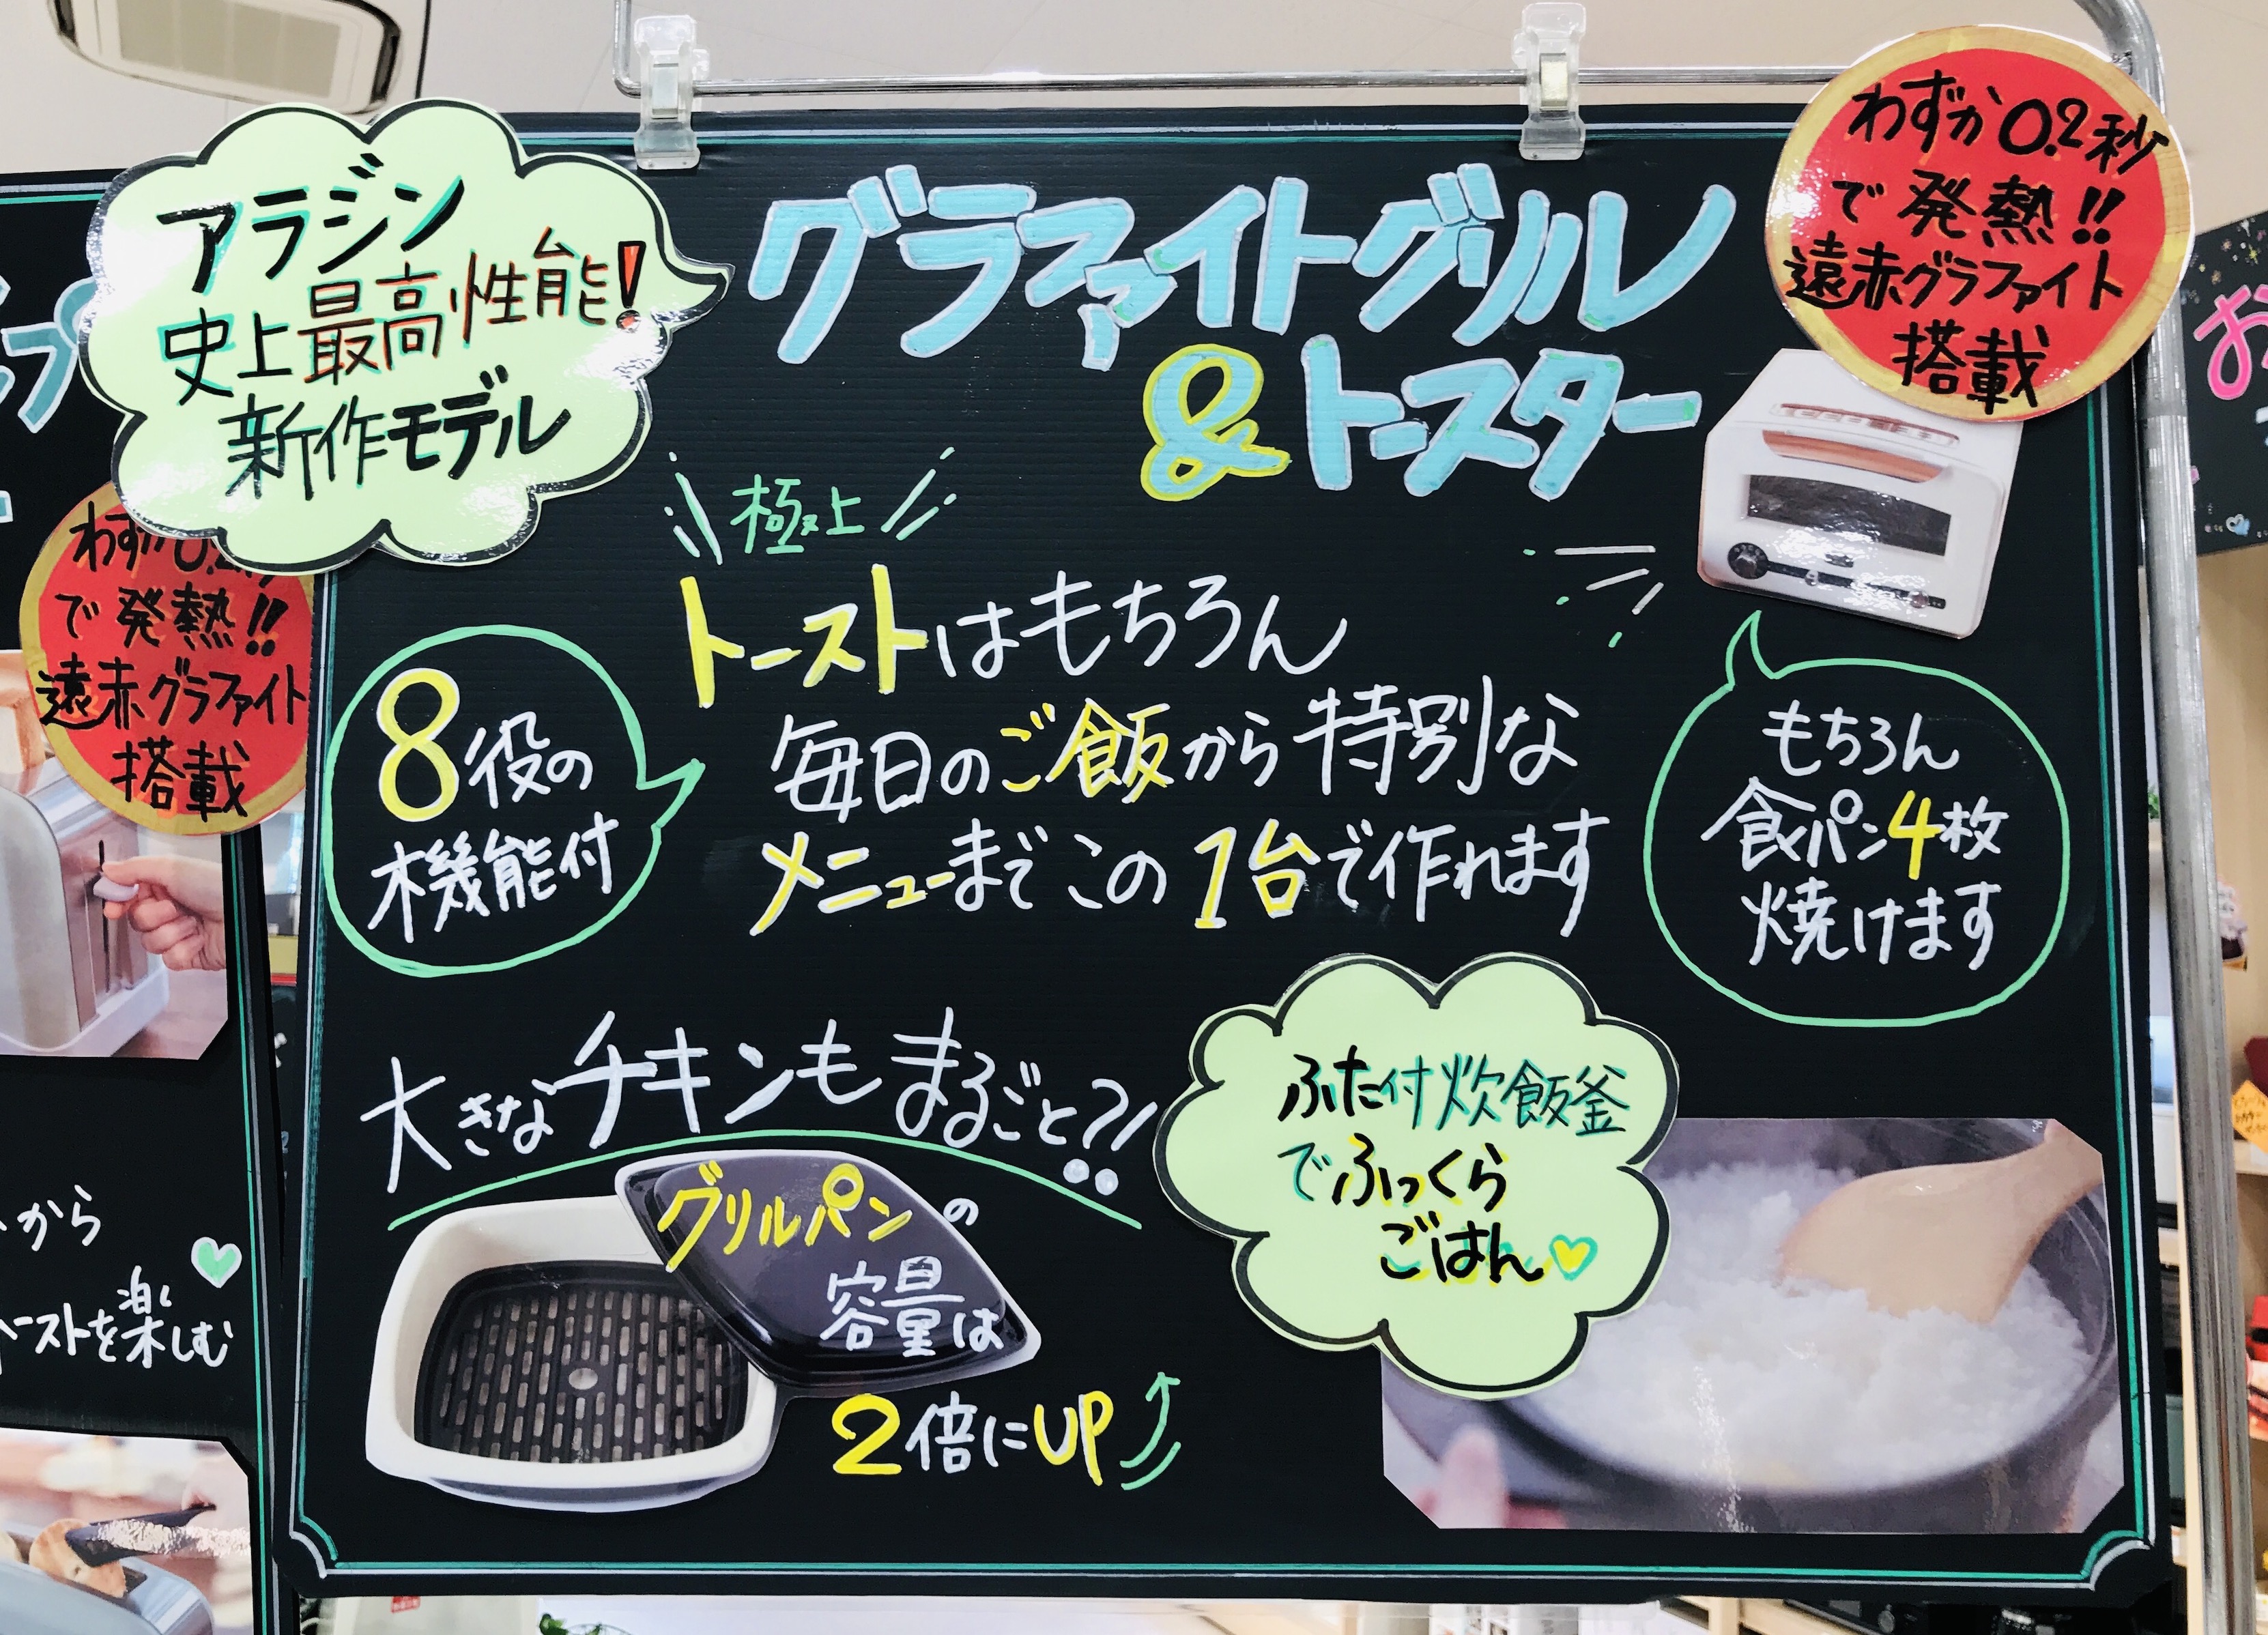 アラジン
史上最高性能!
新作モデル
グラファイトグリル
&トースター
わずか0.2秒
で発熱!!
遠赤グラファイト
搭載
極上
トーストはもちろん
毎日のご飯から特別な
メニューまでこの1台で作れます
8役の
機能付
もちろん
食パン4枚
焼けます
大きなチキンもまるごと?!
グリルパンの
容量は
2倍にUP
ふた付炊飯釜
でふっくら
ごはん
で発熱!!
遠赤グラファイト
搭載
から
ーストを楽しむ
お